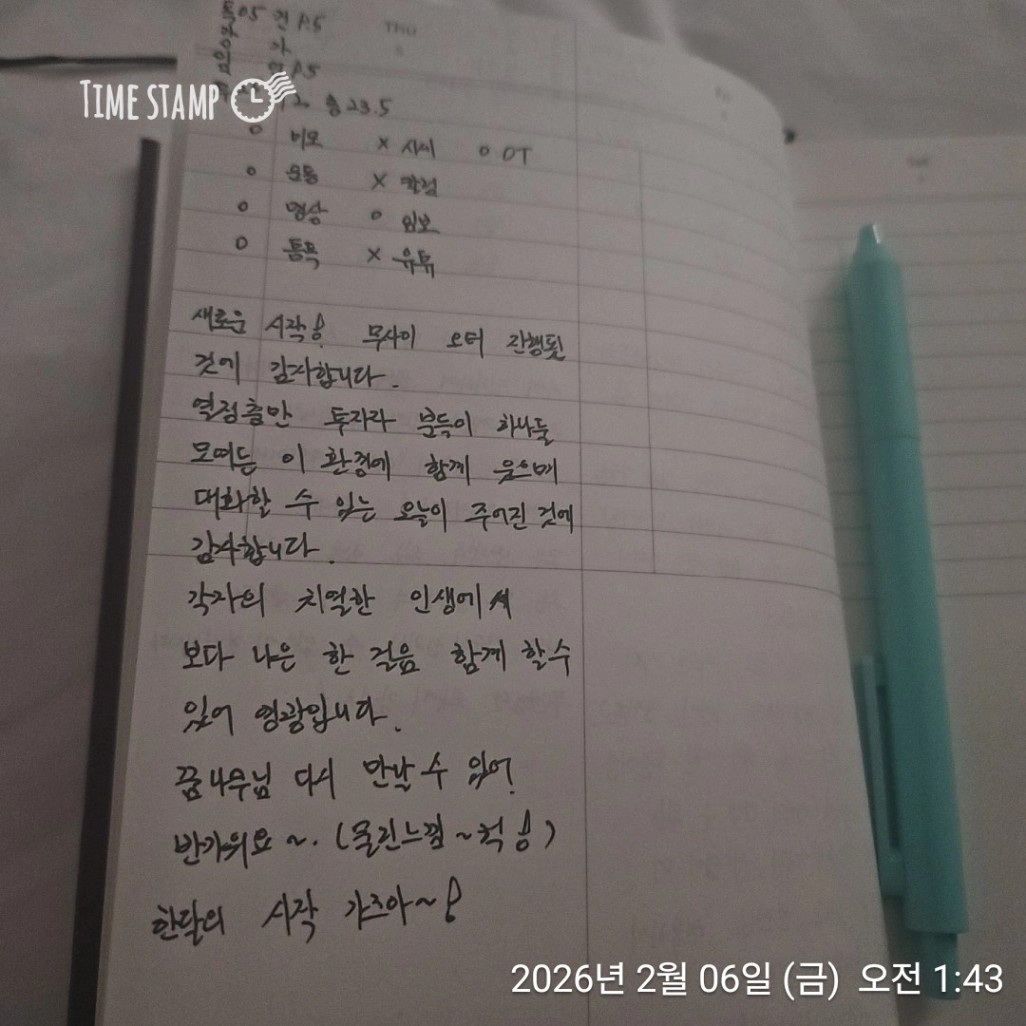 독 0.5 건 1.5
강 가
임 업 1.5
TIME STAMP
총 23.5
o 비모 x 사씨 o OT
o 운동 x 칼럼
o 영상 o 임보
o 튼목 x 유튜
새로운 시작! 무사이 오티 진행된
것에 감사합니다.
열정충만 투자라 분득이 하나둘
모여든 이 환경에 함께 웃으며
대화할 수 있는 오늘이 주어진 것에
감사합니다.
각자의 치열한 인생에서
보다 나은 한 걸음 함께 할 수
있어 영광입니다.
꿈나무님 다시 만날 수 있어!
반가워요~. (물린느낌~척!)
한달의 시작 가즈아~!
2026년 2월 06일 (금) 오전 1:43